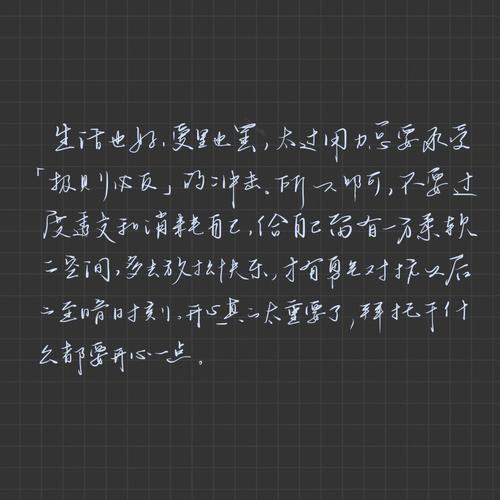 生活也好,爱里也罢,太过用力总要承受
「极则必反」的冲击。所以即可,不要过
度透支和消耗自己,给自己留有一方柔软
的空间,多去放松快乐,才有勇气对抗以后
的至暗时刻。开心真的太重要了,拜托干什
么都要开心一点。